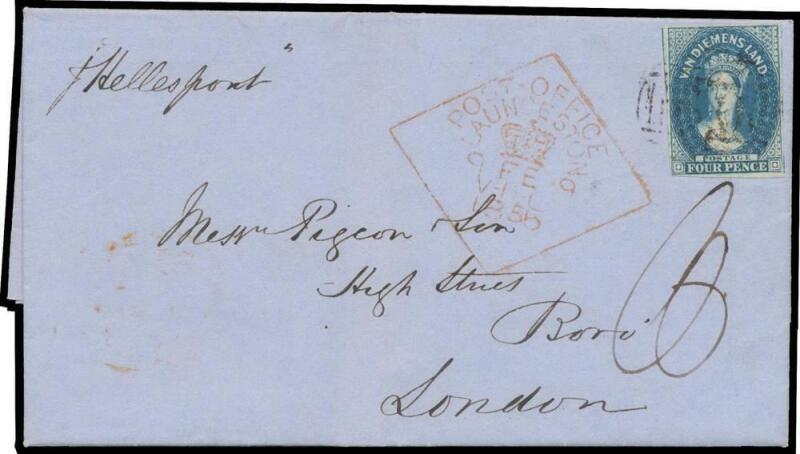 p "Hellespont"
VAN DIEMENS LAND
POSTAGE
FOUR PENCE
POST OFFICE
LAUNCESTON
Messrs Pigeon & Son
High Street
Boro'
London
6